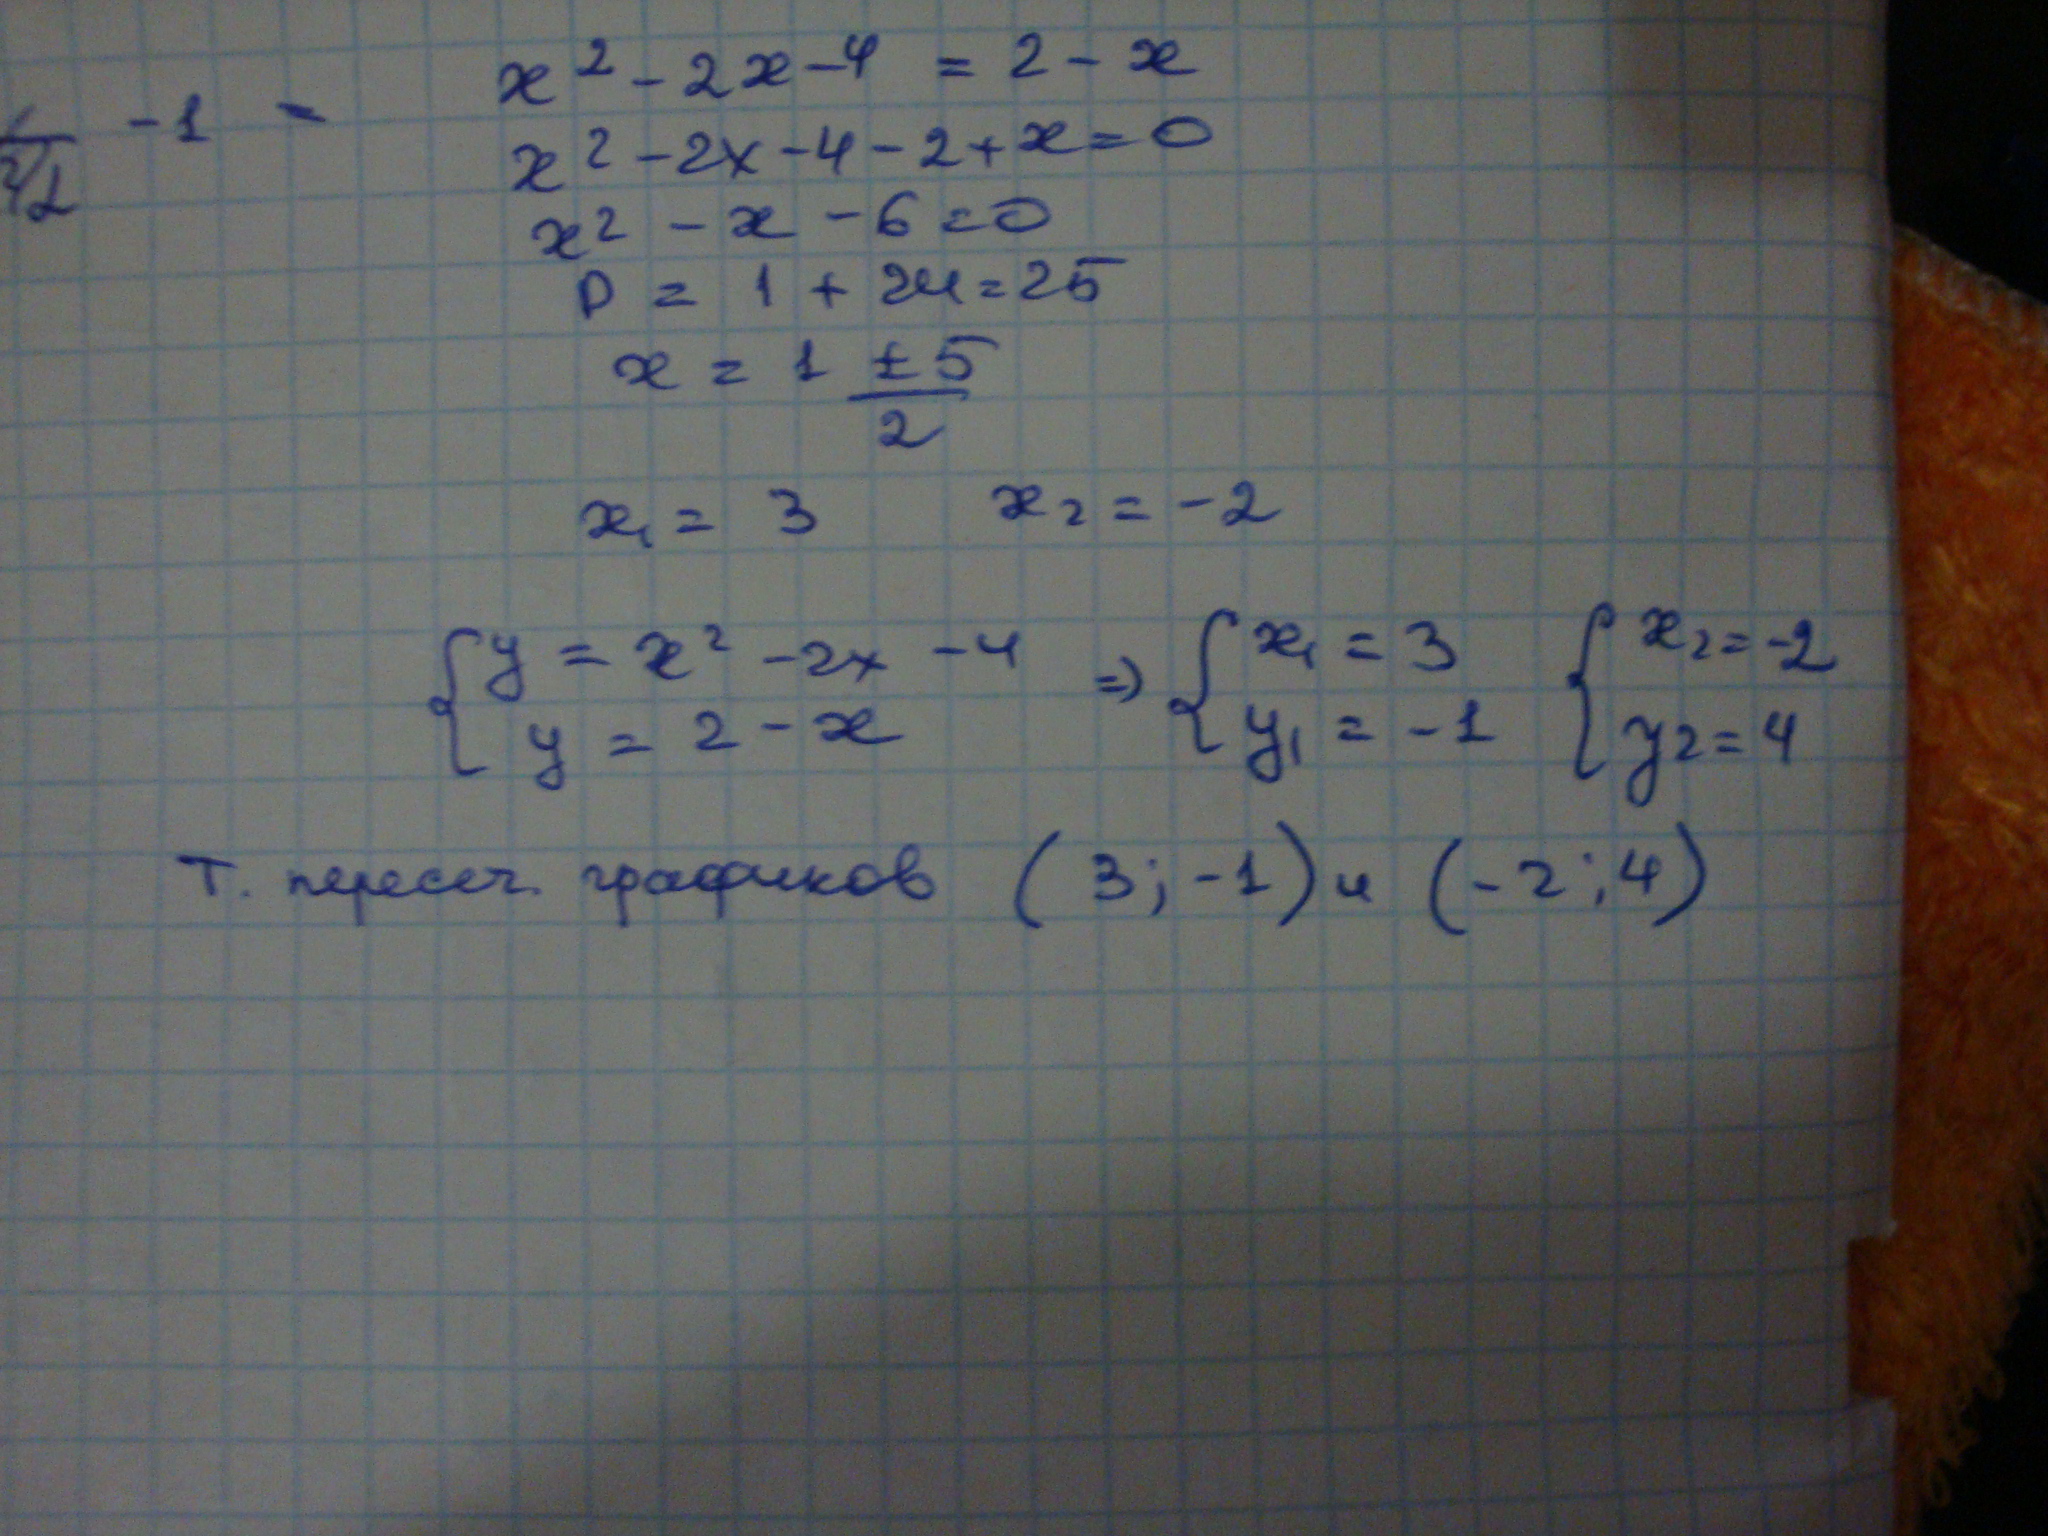 x² - 2x - 4 = 2 - x
- 1 =
x² - 2x - 4 - 2 + x = 0
x² - x - 6 = 0
D = 1 + 24 = 25
x = 1 ± 5
2
x₁ = 3 x₂ = -2
{ y = x² - 2x - 4 => { x₁ = 3 { x₂ = -2
y = 2 - x y₁ = -1 y₂ = 4
Т. пересеч. графиков (3; -1) и (-2; 4)